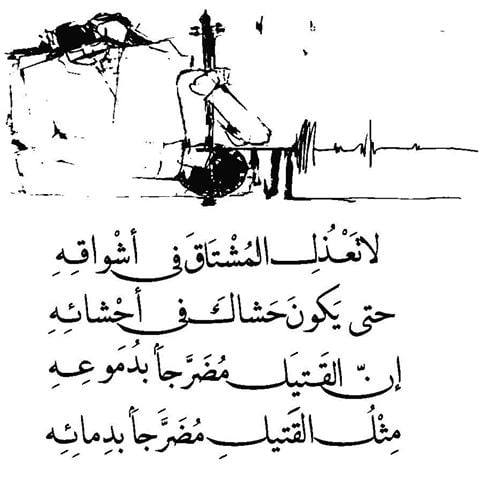 لا تَعْذُلِ المُشْتَاقَ في أشْواقِهِ
حتى يَكونَ حَشاكَ في أحْشائِهِ
إنّ القَتيلَ مُضَرَّجاً بدُموعِهِ
مِثْلُ القَتيلِ مُضَرَّجاً بدِمائِهِ